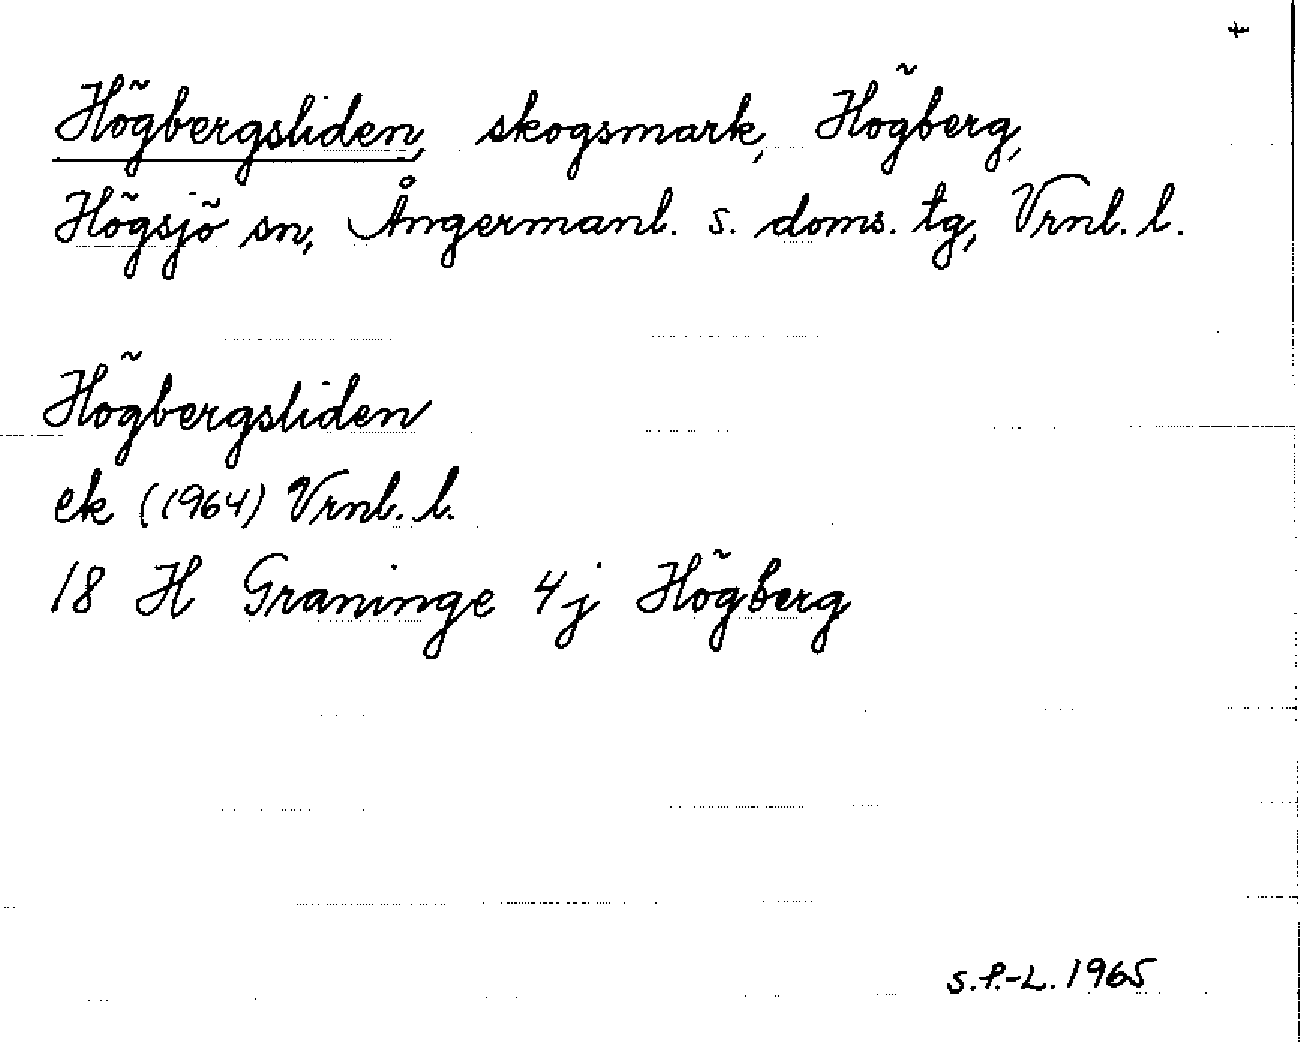 Högbergsliden, skogsmark, Högberg,
Högsjö sn, Ångermanl. s. doms. tg, Vrnl. l.
Högbergsliden
ek (1964) Vrnl. l.
18 H Graninge 4j Högberg
S.P.-L. 1965